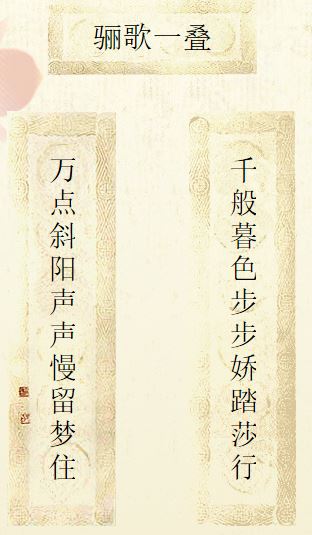 骊歌一叠
千般暮色步步娇踏莎行
万点斜阳声声慢留梦住